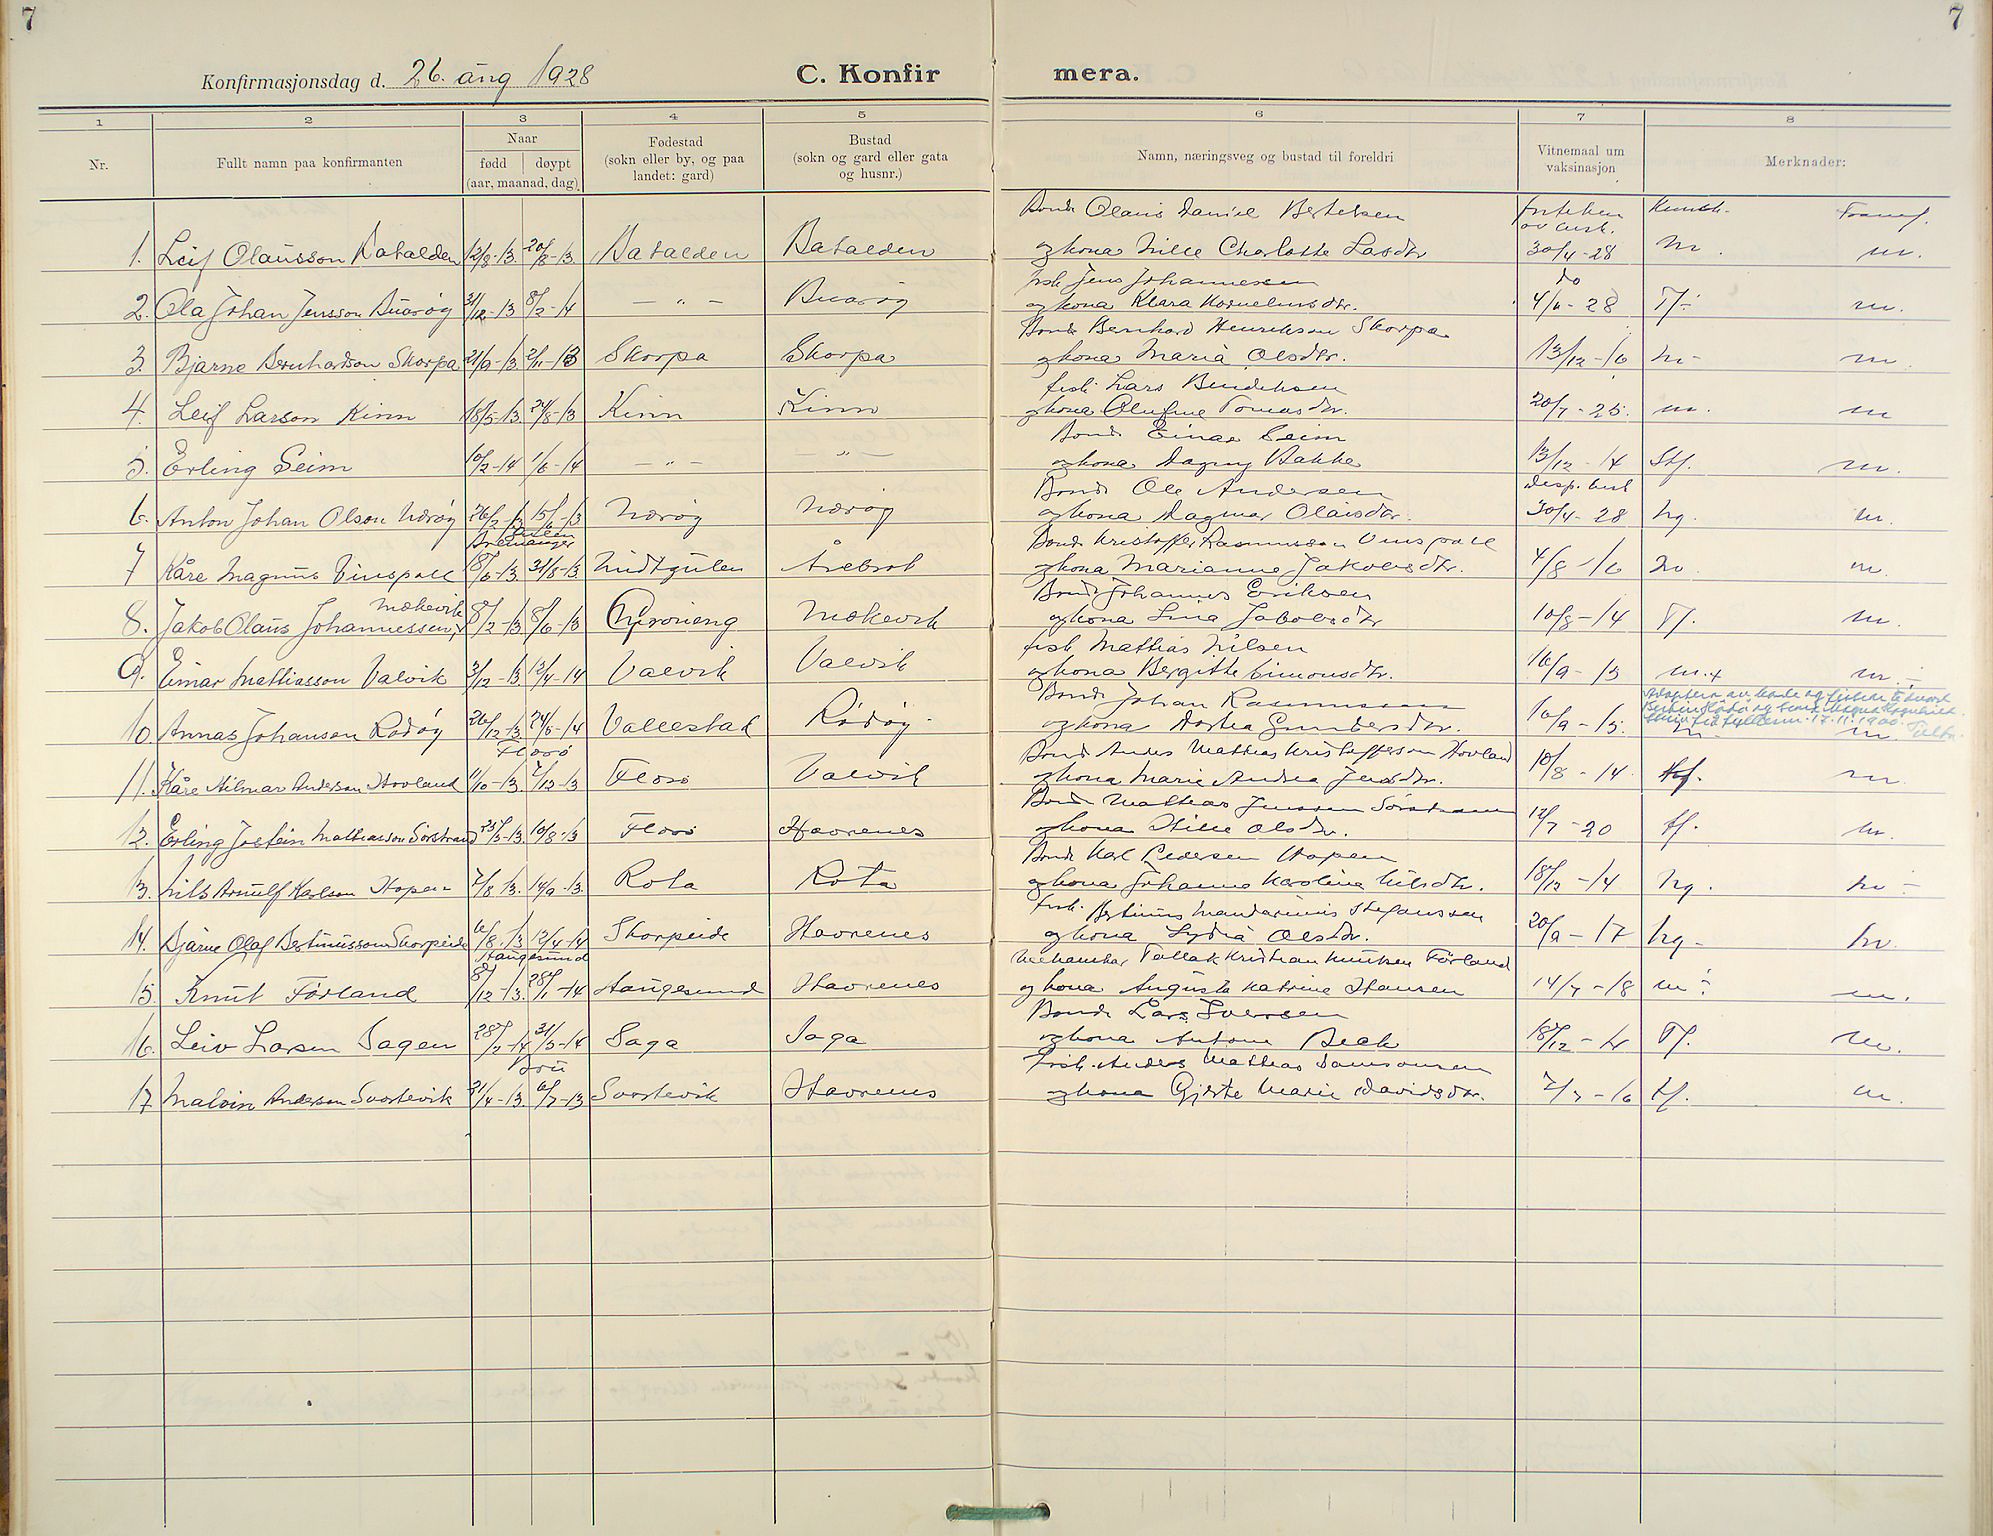 7
7
Konfirmasjonsdag d. 26. aug 1928
C. Konfir mera.
1 2 3 4 5 6 7 8
Nr.
Fullt namn paa konfirmanten
Naar
fødd døypt
(aar, maanad, dag)
Fødestad
(sokn eller by, og paa
landet: gard)
Bustad
(sokn og gard eller gata
og husnr.)
Namn, næringsveg og bustad til foreldri
Vitnemaal um
vaksinasjon
Merknader:
Bonde Olaus Daniel Bertelsen
1. Leif Olausson Batalden 12/8-13. 20/8-13. Batalden Batalden og kona Nille Charlotte Lasdtr 30/4-28 m. m.
fisk Jens Johannessen do
2. Ola Johan Jensson Buarøy 31/12-13 8/2-14 — „ — Buarøy og kona Klara Korneliusdtr. 4/6-28 Tf. m.
Bonde Bernhard Henrikson Skorpa
3. Bjarne Bernhardson Skorpa 21/9-13. 2/11-13 Skorpa Skorpa og kona Maria Olsdtr. 13/12-16 m m.
fisk. Lars Bendiksen
4. Leif Larson Kinn 18/5-13. 24/8-13 Kinn Kinn og kona Olufine Tomasdtr. 20/7-25. m. m
Bonde Einar Seim
5. Erling Seim 10/2-14 1/6-14 — „ — — „ — og kona Dagny Bakke 13/12-14 Stf. m.
Bonde Ole Andersen desp. best
6. Anton Johan Olson Nærøy 26/2-13 15/6-13 Nærøy Nærøy og kona Dagmar Olaisdtr. 30/4-28 ng. m.
Bremanger Bonde Kristoffer Rasmusson Vinspoll
7 Kåre Magnus Vinspoll 8/6-13. 31/8-13 Midtgulen Årebrot og kona Marianne Jakobsdtr. 4/8-16 m.
Mækevik Bonde Johannes Eriksen
8. Jakob Olaus Johannessen 8/2-13. 8/6-13 Mækevik og kona Lina Jakobsdtr 10/8-14 Tf. m.
fisk Mathias Nilsen
9. Einar Mathiasson Valvik 3/12-13. 12/4-14 Valvik Valvik og kona Bergitte Simonsdtr. 16/9-13 m.+ m.
Bonde Johan Rasmussen
10. Annas Johanson Rødøy 26/12-13 24/5-14 Vallestad Rødøy og kona Dortea Gundersdtr. 16/9-15. m.
Florø Bonde Anders Mathias Kristofferson Hovland
11. Kåre Hilmar Anderson Hovland 11/10-13. 7/12-13 Florø Valvik og kona Marie Andrea Jensdtr. 10/8-14 m.
Bonde Mathias Jensson Sørstrann
12. Erling Jostein Mathiasson Sørstrand 25/5-13. 10/8-13 Florø Havrenes og kona Hille Olsdtr. 12/7-20 tf. m.
Bonde Karl Pedersen Hopen
13. Nils Arnulf Karlson Hopen 7/8-13. 14/9-13. Rota Rota og kona Johanne Karolina Nilsdtr. 18/12-14 ng.
fisk. Bertinus Mandarinus Stefanssen
14. Bjarne Olaf Bertinusson Skorpeide 6/8-13 12/4-14 Skorpeide Havrenes og kona Lydia Olsdtr. 20/9-17 ng
Haugesund Mekaniker Tallak Kristian Knutsen Førland
15. Knut Førland 8/12-13. 28/1-14 Haugesund Havrenes og kona Augusta Katrine Hansen 14/7-18 m m.
Bonde Lars Iversen
16. Leiv Larsen Sagen 28/2-14 31/5-14 Saga Saga og kona Antone Beck 18/12-14 Tf. m.
Bru fisk. Anders Mathias Samsonsen
17 Malvin Anderson Svortevik 21/4-13. 6/7-13 Svortevik Havrenes og kona Gjerte Marie Davidsdtr. 7/7-16 tf. m.